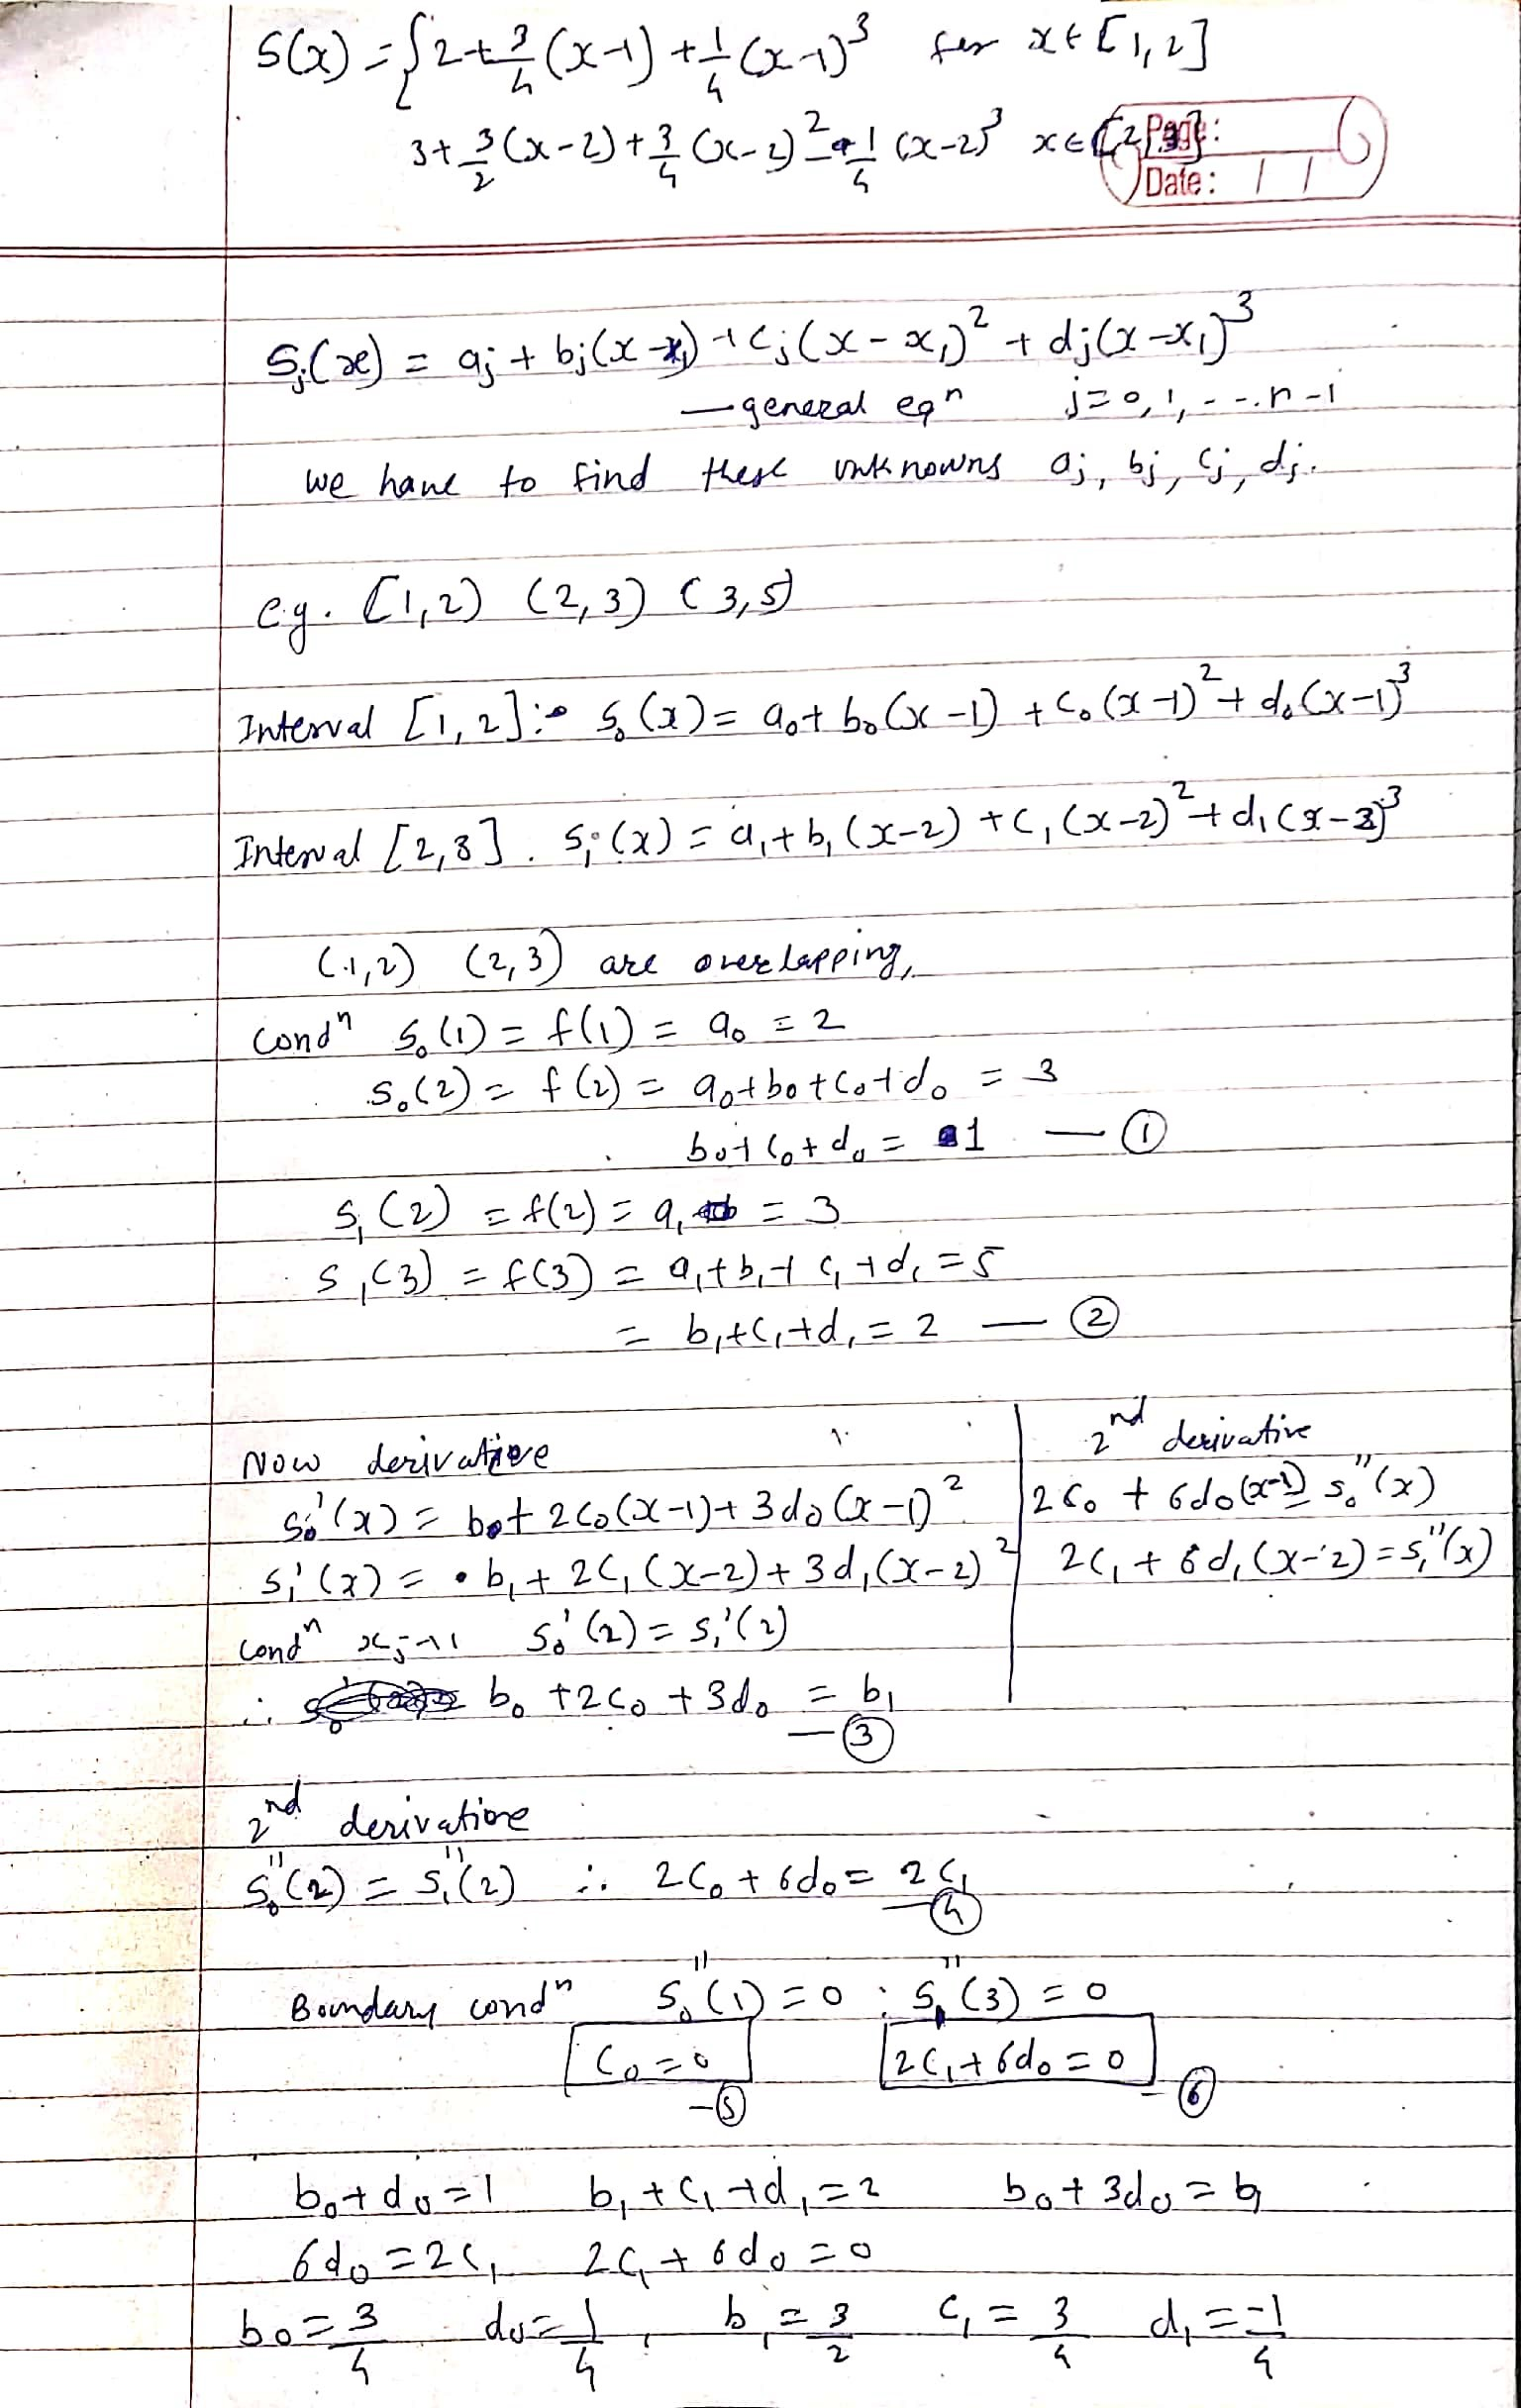 S(x) = { 2 + 3/4 (x-1) + 1/4 (x-1)³ for x ∈ [1,2]
3 + 3/2 (x-2) + 3/4 (x-2)² - 1/4 (x-2)³ x ∈ [2,3]
Page:
Date: / /
Sj(x) = aj + bj(x-xj) + cj(x-xj)² + dj(x-xj)³
— general eqⁿ j=0,1,--.n-1
we have to find these unknowns aj, bj, cj, dj.
e.g. [1,2) (2,3) (3,5)
Interval [1,2]: S₀(x) = a₀ + b₀(x-1) + c₀(x-1)² + d₀(x-1)³
Interval [2,3]. S₁(x) = a₁ + b₁(x-2) + c₁(x-2)² + d₁(x-2)³
(1,2) (2,3) are overlapping,
condⁿ S₀(1) = f(1) = a₀ = 2
S₀(2) = f(2) = a₀+b₀+c₀+d₀ = 3
b₀+c₀+d₀ = 1 — ①
S₁(2) = f(2) = a₁ = 3
S₁(3) = f(3) = a₁+b₁+c₁+d₁ = 5
= b₁+c₁+d₁ = 2 — ②
Now derivative
S₀'(x) = b₀ + 2c₀(x-1) + 3d₀(x-1)²
S₁'(x) = b₁ + 2c₁(x-2) + 3d₁(x-2)²
condⁿ xj+1 S₀'(2) = S₁'(2)
∴ b₀ + 2c₀ + 3d₀ = b₁
— ③
2nd derivative
2c₀ + 6d₀(x-1) = S₀''(x)
2c₁ + 6d₁(x-2) = S₁''(x)
2nd derivative
S₀''(2) = S₁''(2) ∴ 2c₀ + 6d₀ = 2c₁
— ④
Boundary condⁿ S₀''(1) = 0 : S₁''(3) = 0
c₀ = 0 2c₁ + 6d₀ = 0
— ⑤ — ⑥
b₀ + d₀ = 1 b₁ + c₁ + d₁ = 2 b₀ + 3d₀ = b₁
6d₀ = 2c₁ 2c₁ + 6d₀ = 0
b₀ = 3/4 d₀ = 1/4, b₁ = 3/2 c₁ = 3/4 d₁ = -1/4